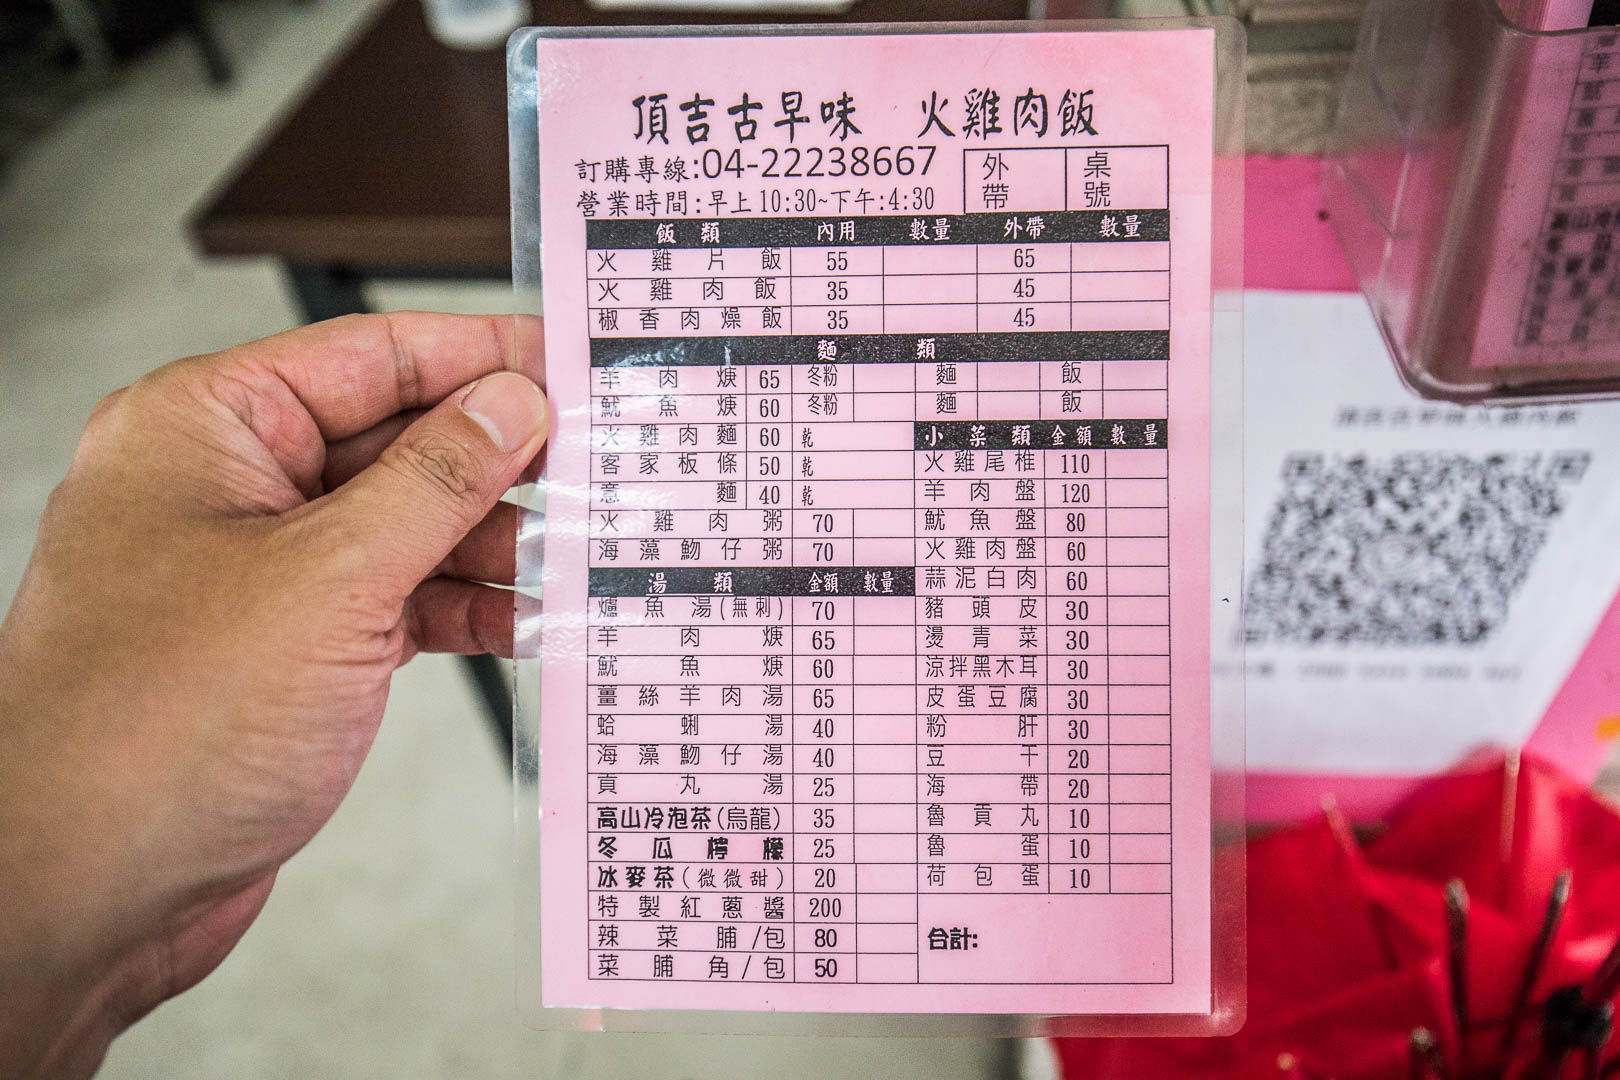 頂吉古早味 火雞肉飯
訂購專線:04-22238667
營業時間:早上10:30~下午:4:30
外帶 桌號
飯類 內用 數量 外帶 數量
火雞片飯 55 65
火雞肉飯 35 45
椒香肉燥飯 35 45
麵類
羊肉焿 65 冬粉 麵 飯
魷魚焿 60 冬粉 麵 飯
火雞肉麵 60 乾
客家板條 50 乾
意麵 40 乾
火雞肉粥 70
海藻魩仔粥 70
湯類 金額 數量
爐魚湯(無刺) 70
羊肉焿 65
魷魚焿 60
薑絲羊肉湯 65
蛤蜊湯 40
海藻魩仔湯 40
貢丸湯 25
高山冷泡茶(烏龍) 35
冬瓜檸檬 25
冰麥茶(微微甜) 20
特製紅蔥醬 200
辣菜脯/包 80
菜脯角/包 50
小菜類 金額 數量
火雞尾椎 110
羊肉盤 120
魷魚盤 80
火雞肉盤 60
蒜泥白肉 60
豬頭皮 30
燙青菜 30
涼拌黑木耳 30
皮蛋豆腐 30
粉肝 30
豆干 20
海帶 20
魯貢丸 10
魯蛋 10
荷包蛋 10
合計: